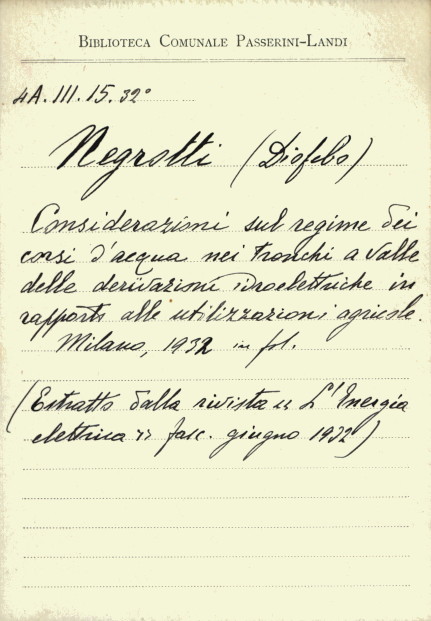 BIBLIOTECA COMUNALE PASSERINI-LANDI
4A.III.15.32°
Negrotti (Diofebo)
Considerazioni sul regime dei
corsi d'acqua nei tronchi a valle
delle derivazioni idroelettriche in
rapporto alle utilizzazioni agricole.
Milano, 1932 in fol.
(Estratto dalla rivista «L'Energia
elettrica» fasc. giugno 1932)